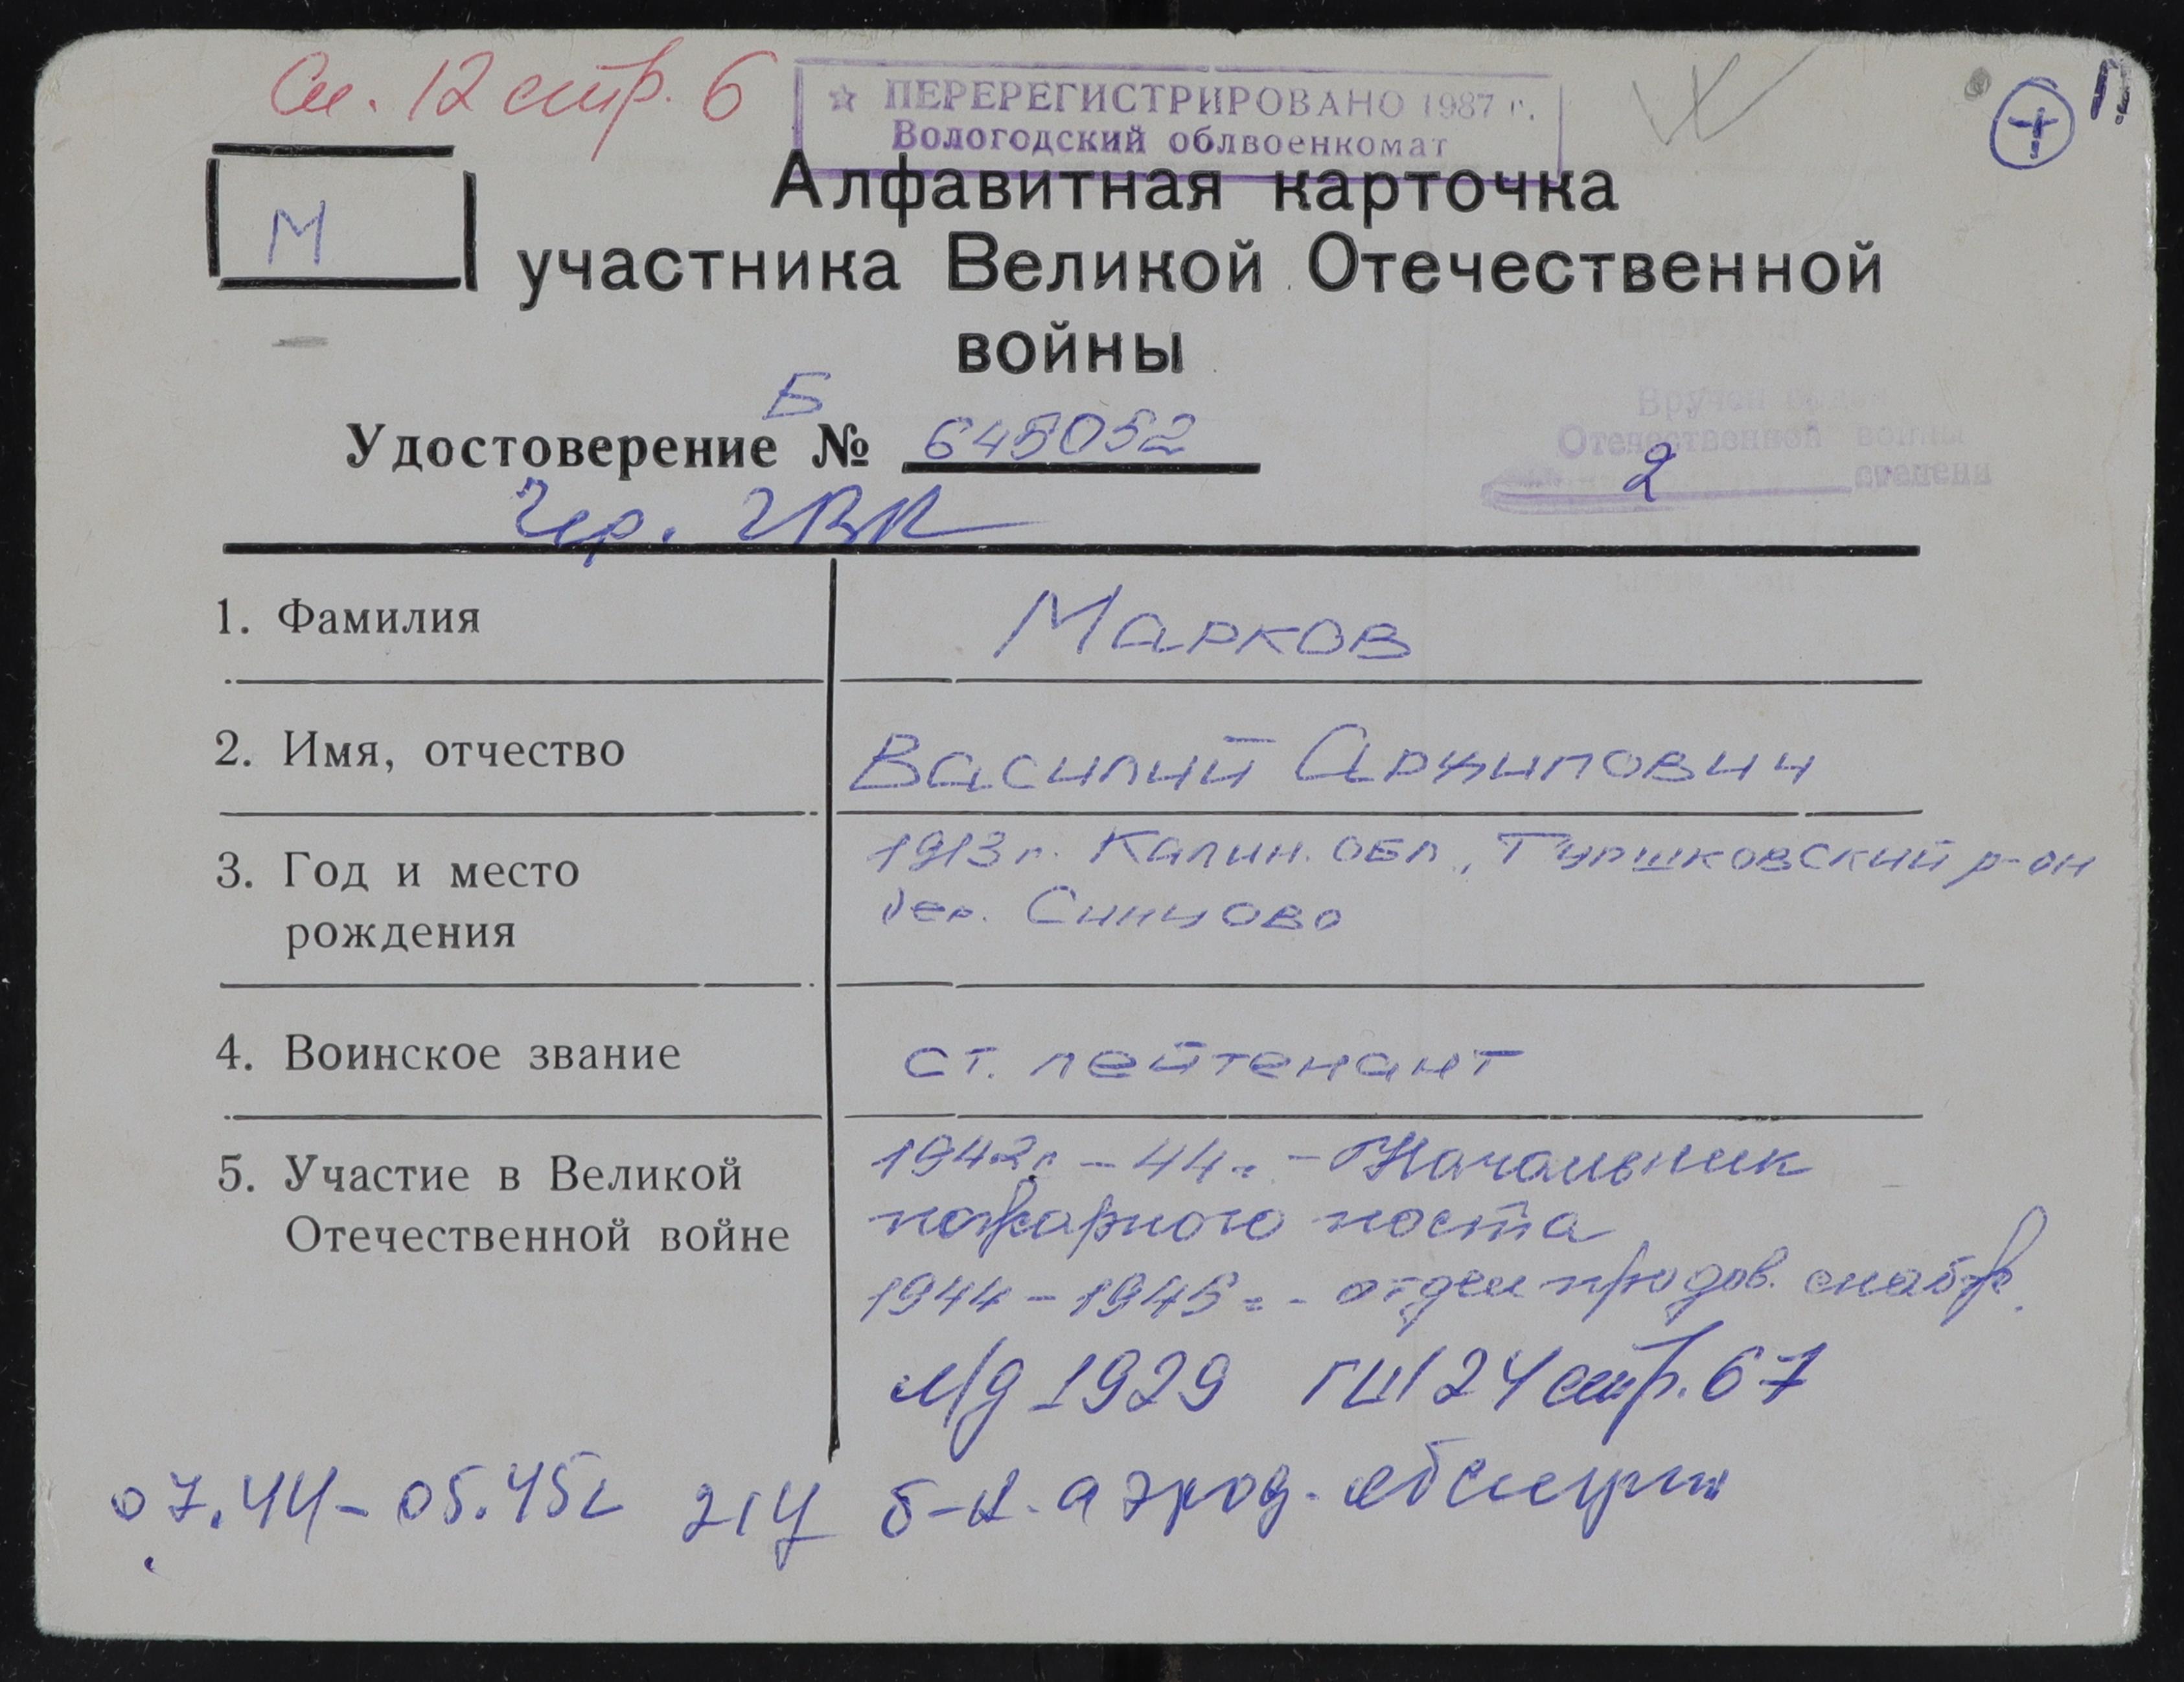 См. 12 стр. 6
☆ ПЕРЕРЕГИСТРИРОВАНО 1987 г.
Вологодский облвоенкомат
М
Алфавитная карточка
участника Великой Отечественной
войны
Б
Удостоверение № 645052
Вручен орден
Отечественной войны
2 степени
Чер. ГВК
1. Фамилия
Марков
2. Имя, отчество
Василий Архипович
3. Год и место
рождения
1913 г. Калин. обл., Гуршковский р-он
дер. Синцово
4. Воинское звание
ст. лейтенант
5. Участие в Великой
Отечественной войне
1942 г. - 44 г. - Начальник
пожарного поста
1944 - 1945 г. - отдел продов. снабж.
л/д 1929 ГШ 124 стр. 67
07.44 - 05.45г 214 б-н. аэрод. обслужи